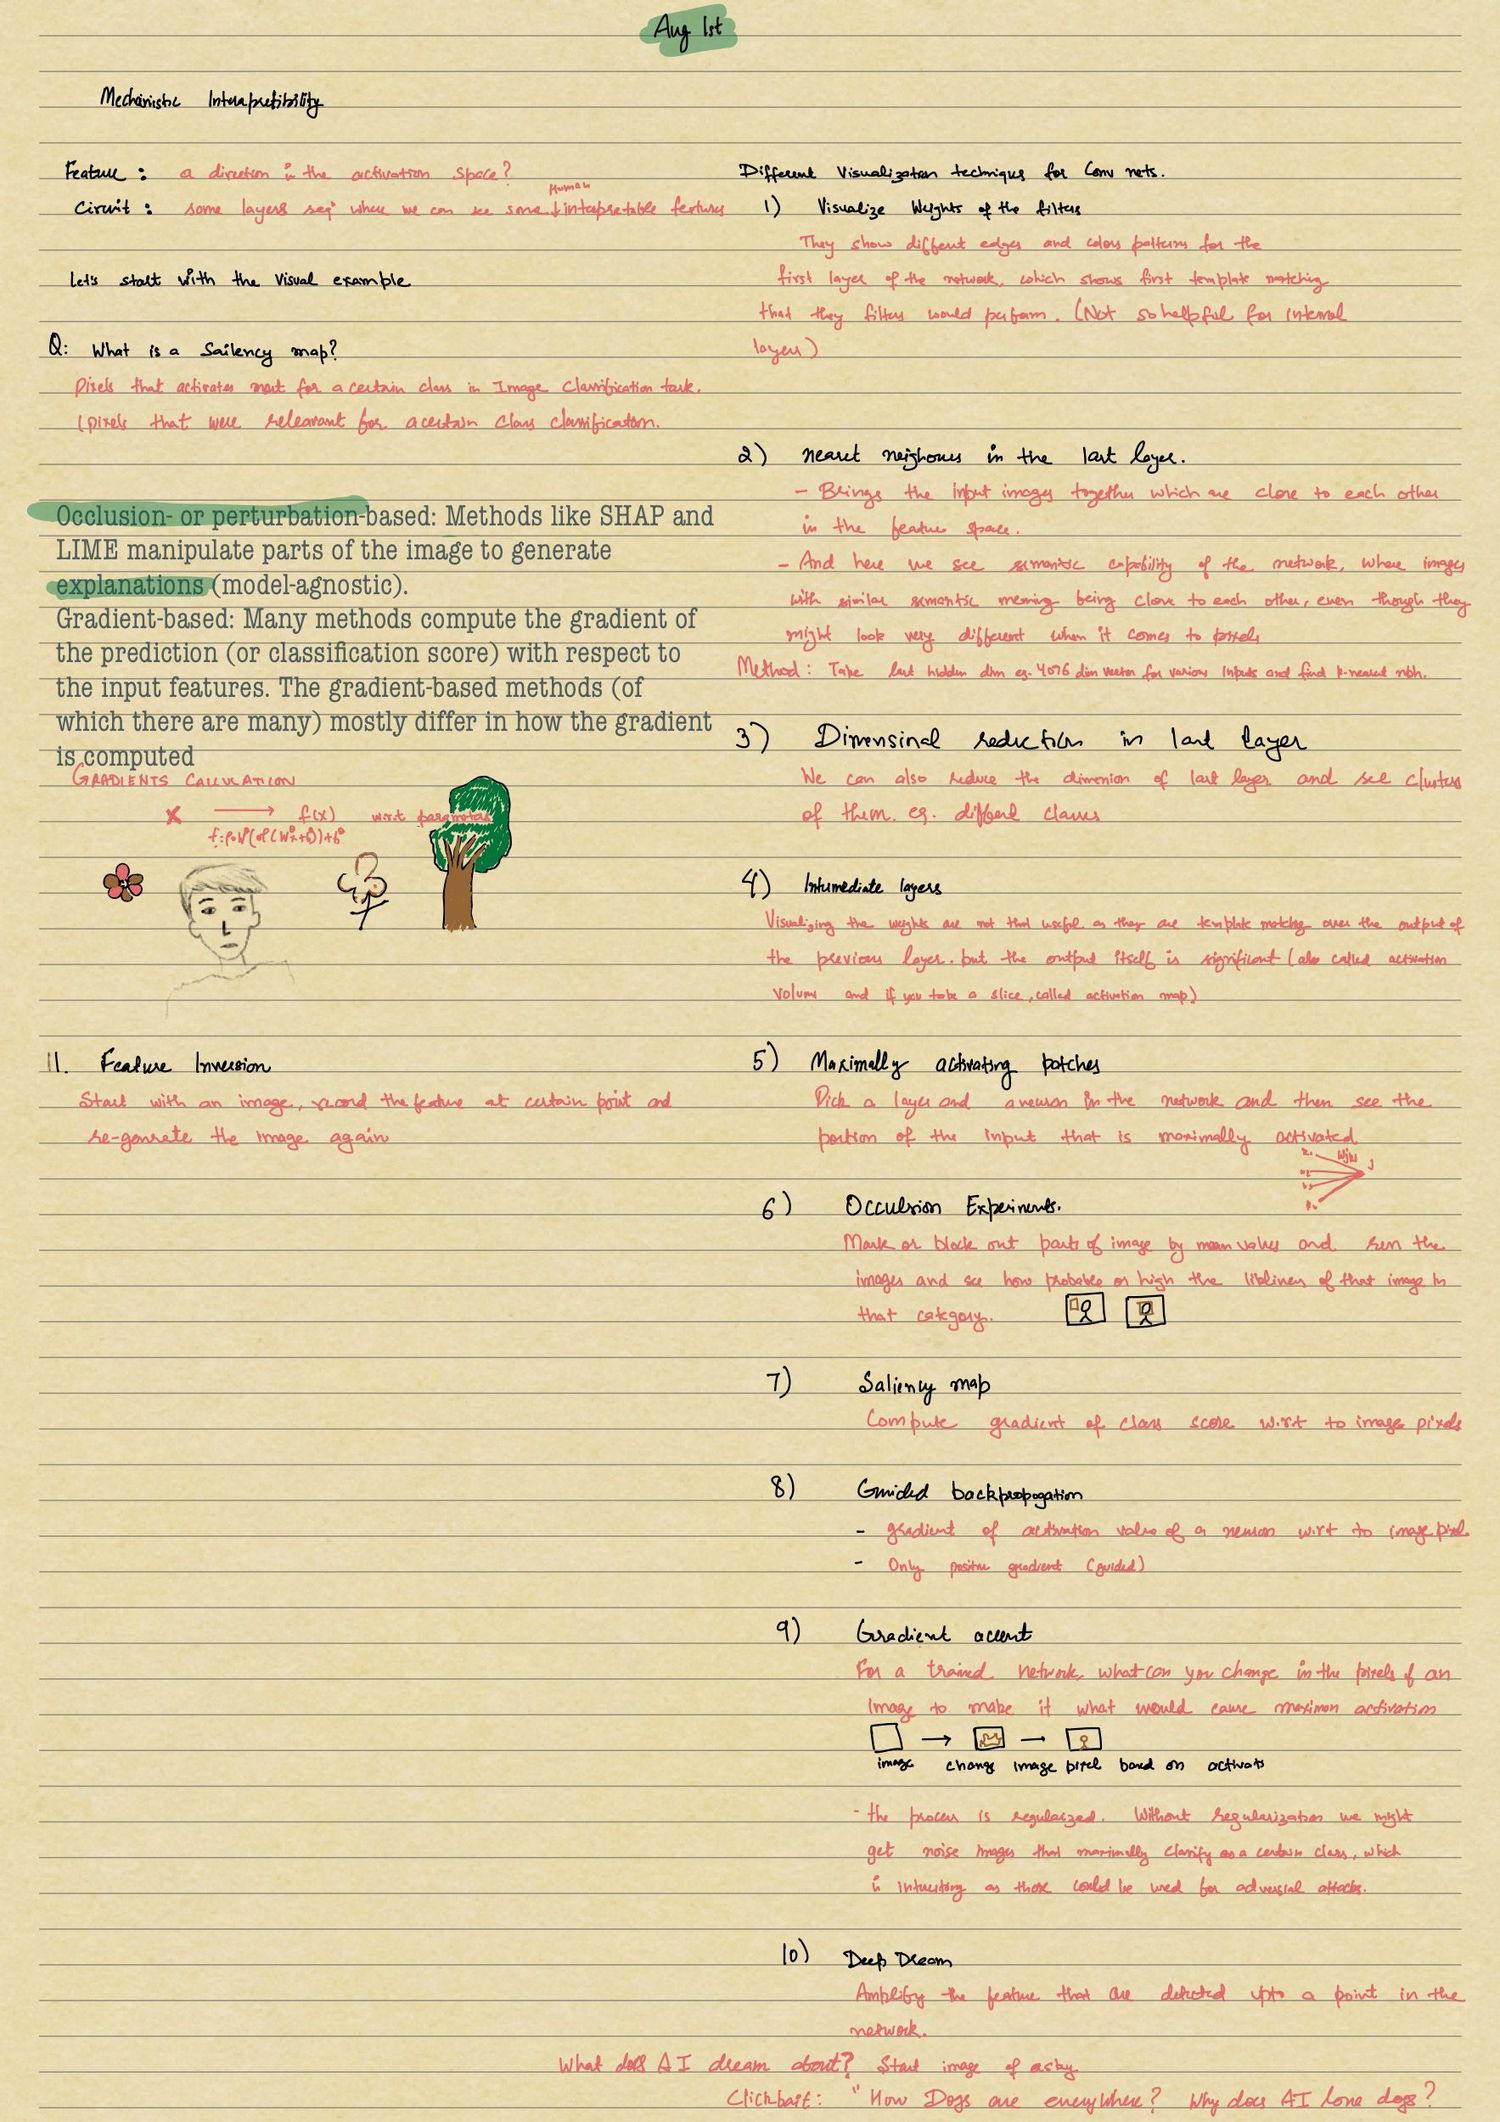 Aug 1st
Mechanistic Interpretibility
Feature : a direction in the activation space?
Human
Circuit : some layers seqn where we can see some ↓ interpretable features
Let's start with the visual example
Q: What is a Sailency map?
Pixels that activates most for a certain class in Image Classification task.
(pixels that were relearant for a certain class classification.
Occlusion- or perturbation-based: Methods like SHAP and
LIME manipulate parts of the image to generate
explanations (model-agnostic).
Gradient-based: Many methods compute the gradient of
the prediction (or classification score) with respect to
the input features. The gradient-based methods (of
which there are many) mostly differ in how the gradient
is computed
GRADIENTS CALCULATION
x → f(x) w.r.t parameters
11. Feature Inversion
Start with an image, record the feature at certain point and
re-genrete the image again
Different Visualization techniques for Conv nets.
1) Visualize Weights of the filters
They show different edges and colors patterns for the
first layer of the network, which shows first template matching
that they filters would perform. (Not so helpful for internal
layers)
2) nearest neighours in the last layer.
- Brings the input images together which are close to each other
in the feature space.
- And here we see semantic capability of the network, where images
with similar semantic meaning being close to each other, even though they
might look very different when it comes to pixels
Method: Take last hidden dim eg. 4096 dim vector for various inputs and find k-nearest nbh.
3) Dimensinal reduction in last layer
We can also reduce the dimension of last layer and see clusters
of them. eg. different classes
4) Intermediate layers
Visualizing the weights are not that useful as they are template matching over the output of
the previous layer. but the output itself is significant (also called activation
volume and if you take a slice, called activation map)
5) Maximally activating patches
Pick a layer and a neuron in the network and then see the
portion of the input that is maximally activated
6) Occulsion Experiments.
Mask or block out parts of image by mean values and run the
images and see how probable or high the likliness of that image in
that category.
7) Saliency map
Compute gradient of class score w.r.t to image pixels
8) Guided backpropogation
- gradient of activation value of a neuron w.r.t to image pixel
- Only positive gradient (guided)
9) Gradient accent
For a trained network, what can you change in the pixels of an
image to make it what would cause maximum activation
image change image pixel based on activats
- the process is regularized. Without regularization we might
get noise images that maximally classify as a certain class, which
is intuciting as those could be used for adversial attacks.
10) Deep Dream
Amplify the feature that are detected upto a point in the
network.
What does AI dream about? Start image of a sky
Clickbait: "How Dogs are everywhere? Why does AI love dogs?